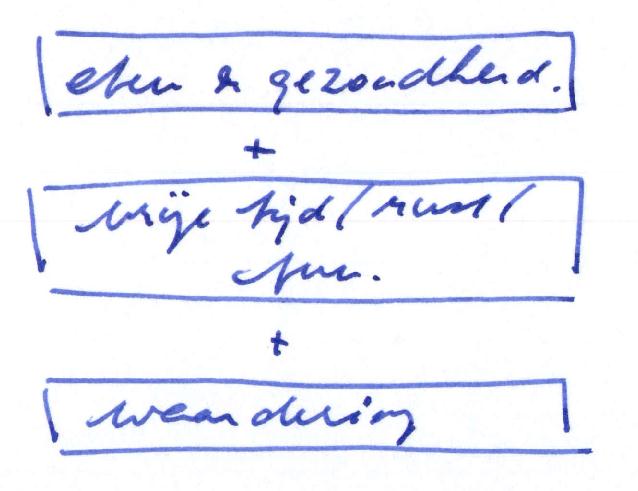 eten & gezondheid.
+
vrije tijd/rust/
eten.
+
waardering